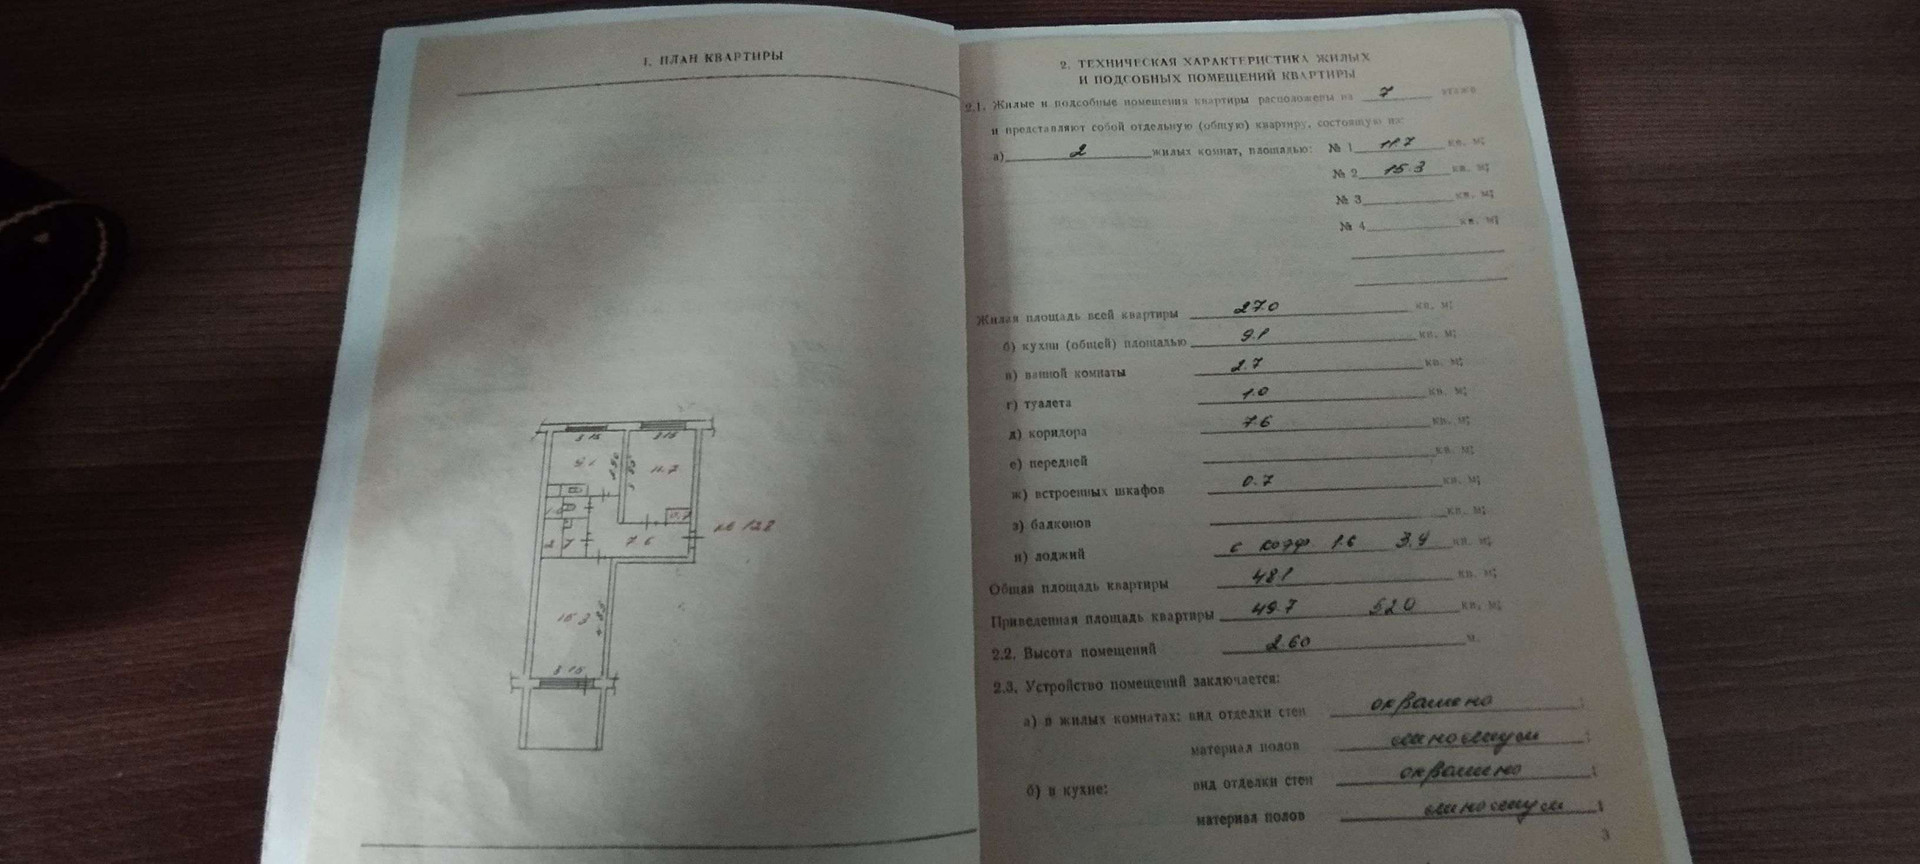 1. ПЛАН КВАРТИРЫ
3.15
3.15
9.1
11.7
1.0
0.7
2.7
7.6
кв 128
15.3
3.15
2. ТЕХНИЧЕСКАЯ ХАРАКТЕРИСТИКА ЖИЛЫХ
И ПОДСОБНЫХ ПОМЕЩЕНИЙ КВАРТИРЫ
2.1. Жилые и подсобные помещения квартиры расположены на 7 этаже
и представляют собой отдельную (общую) квартиру, состоящую из:
а) 2 жилых комнат, площадью: № 1 11.7 кв. м;
№ 2 15.3 кв. м;
№ 3 кв. м;
№ 4 кв. м;
Жилая площадь всей квартиры 27.0 кв. м;
б) кухни (общей) площадью 9.1 кв. м;
в) ванной комнаты 2.7 кв. м;
г) туалета 1.0 кв. м;
д) коридора 7.6 кв. м;
е) передней кв. м;
ж) встроенных шкафов 0.7 кв. м;
з) балконов кв. м;
и) лоджий с коэф 1.6 3.4 кв. м;
Общая площадь квартиры 48.1 кв. м;
Приведенная площадь квартиры 49.7 52.0 кв. м;
2.2. Высота помещений 2.60 м.
2.3. Устройство помещений заключается:
а) в жилых комнатах: вид отделки стен окрашено ;
материал полов линолеум ;
б) в кухне: вид отделки стен окрашено ;
материал полов линолеум ;
3